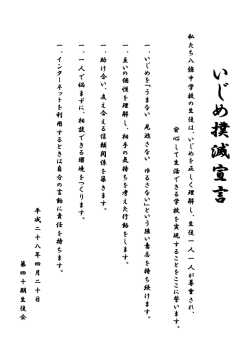 いじめ撲滅宣言
私たち八條中学校の生徒は、いじめを正しく理解し、生徒一人一人が尊重され、
安心して生活できる学校を実現することをここに誓います。
一、いじめを「うまない 見逃さない ゆるさない」という強い意志を持ち続けます。
一、互いの個性を理解し、相手の気持ちを考えた行動をします。
一、助け合い、支え合える信頼関係を築きます。
一、一人で悩まずに、相談できる環境をつくります。
一、インターネットを利用するときは自分の言動に責任を持ちます。
平成二十八年四月二十日
第四十期生徒会